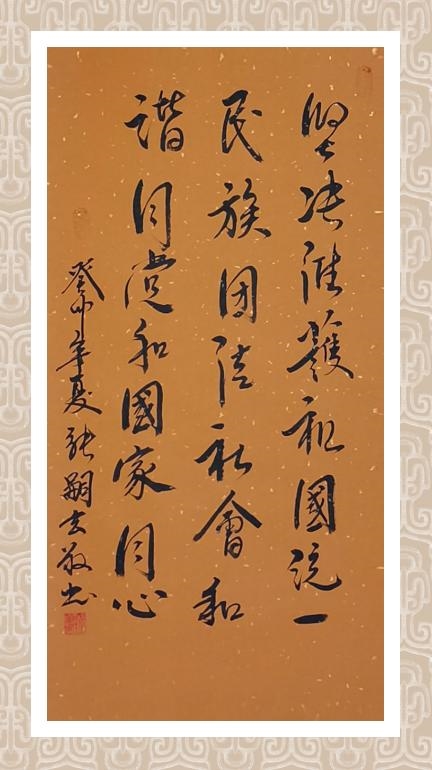 坚决维護祖國统一
民族团结社會和
谐同党和國家同心
癸卯年夏张嗣玄敬书